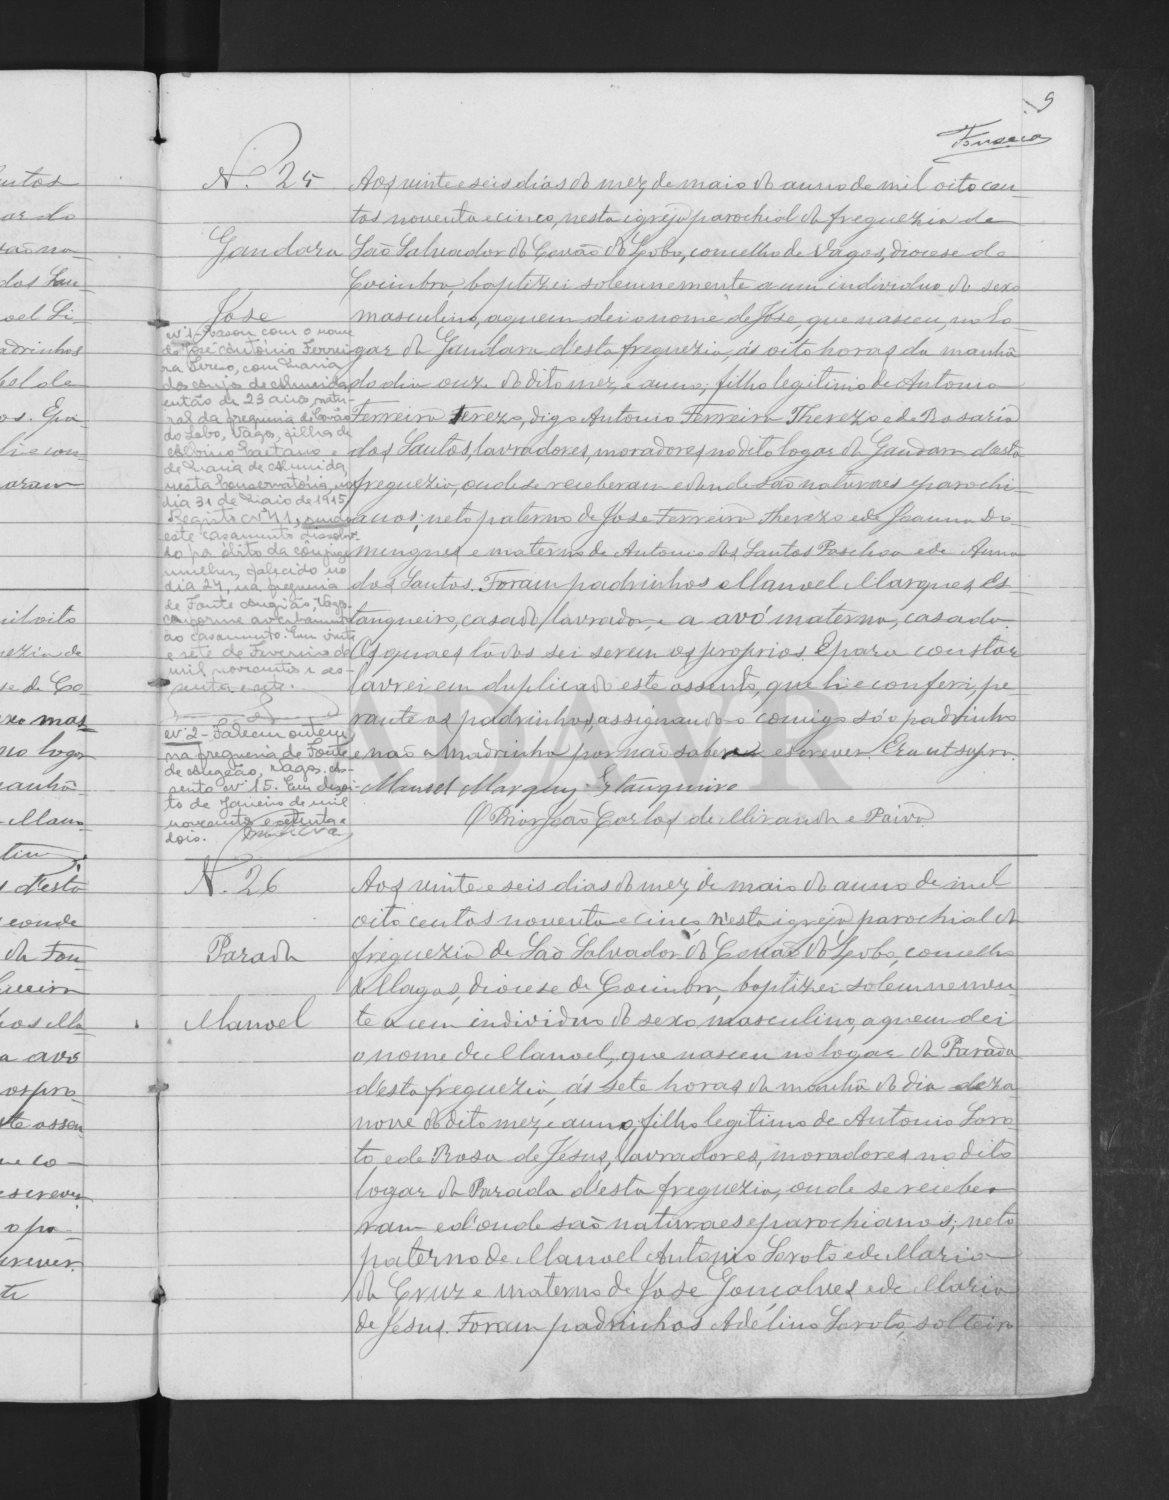 9
Fonseca
N. 25
Gandara
José
Aos vinte e seis dias do mez de maio do anno de mil oito cen-
tos noventa e cinco, nesta igreja parochial da freguezia de
São Salvador do Covão do Lobo, concelho de Vagos, diocese de
Coimbra, baptizei solemnemente a um individuo do sexo
masculino, a quem dei o nome de José, que nasceu, no lo-
gar da Gandara d'esta freguezia, ás oito horas da manhã
do dia onze do dito mez, e anno, filho legitimo de Antonio
Ferreira Terezo, digo Antonio Ferreira Therezo e de Rosaria
dos Santos, lavradores, moradores no dito logar da Gandara d'esta
freguezia, onde se receberam e donde são naturaes e parochi-
anos; neto paterno de José Ferreira Therezo e de Joanna Do-
mingues e materno de Antonio dos Santos Paschoa e de Anna
dos Santos. Foram padrinhos Manoel Marques Es-
tanqueiro, casado, lavrador, e a avó materna, casada
Os quaes todos sei serem os proprios. E para constar
lavrei em duplicado este assento, que li e conferi, pe-
rante os padrinhos, assignando-o comigo só o padrinho
e não a madrinha por não saber escrever. Era ut supra.
Manoel Marques Estanqueiro
O Prior João Carlos de Miranda e Paiva
nº 1- Casou com o nome
de José António Ferrei-
ra Terezo, com Maria
dos Anjos de Almeida,
então de 23 anos, natu-
ral da freguesia de Covão
do Lobo, Vagos, filha de
Albino Caetano e
de Maria de Almeida,
nesta Conservatória, no
dia 31 de Maio de 1915,
Registo nº 41, sendo
este casamento dissolvi-
do por óbito da conjuge
mulher, falecida no
dia 24, na freguesia
de Fonte Angeão, Vagos.
conforme averbamento
ao casamento. Em vinte
e sete de Fevereiro de
mil novecentos e ses-
senta e sete.
nº 2- Faleceu ontem,
na freguesia de Fonte
de Angeão, Vagos. As-
sento nº 15. Em dezoi-
to de Janeiro de mil
novecentos e setenta e
dois.
N. 26
Parada
Manoel
Aos vinte e seis dias do mez de maio do anno de mil
oito centos noventa e cinco, n'esta igreja parochial da
freguezia de São Salvador do Covão do Lobo, concelho
de Vagos, diocese de Coimbra, baptizei solemnemen-
te a um individuo do sexo masculino, a quem dei
o nome de Manoel, que nasceu no logar da Parada
d'esta freguezia, ás sete horas da manhã do dia deza-
nove do dito mez, e anno, filho legitimo de Antonio Loro-
to, e de Rosa de Jesus, lavradores, moradores no dito
logar da Parada d'esta freguezia, onde se recebe-
ram e d'onde são naturaes e parochianos; neto
paterno de Manoel Antonio Loroto e de Maria
da Cruz e materno de José Gonçalves e de Maria
de Jesus. Foram padrinhos Adélino Loroto, solteiro
ADAVR